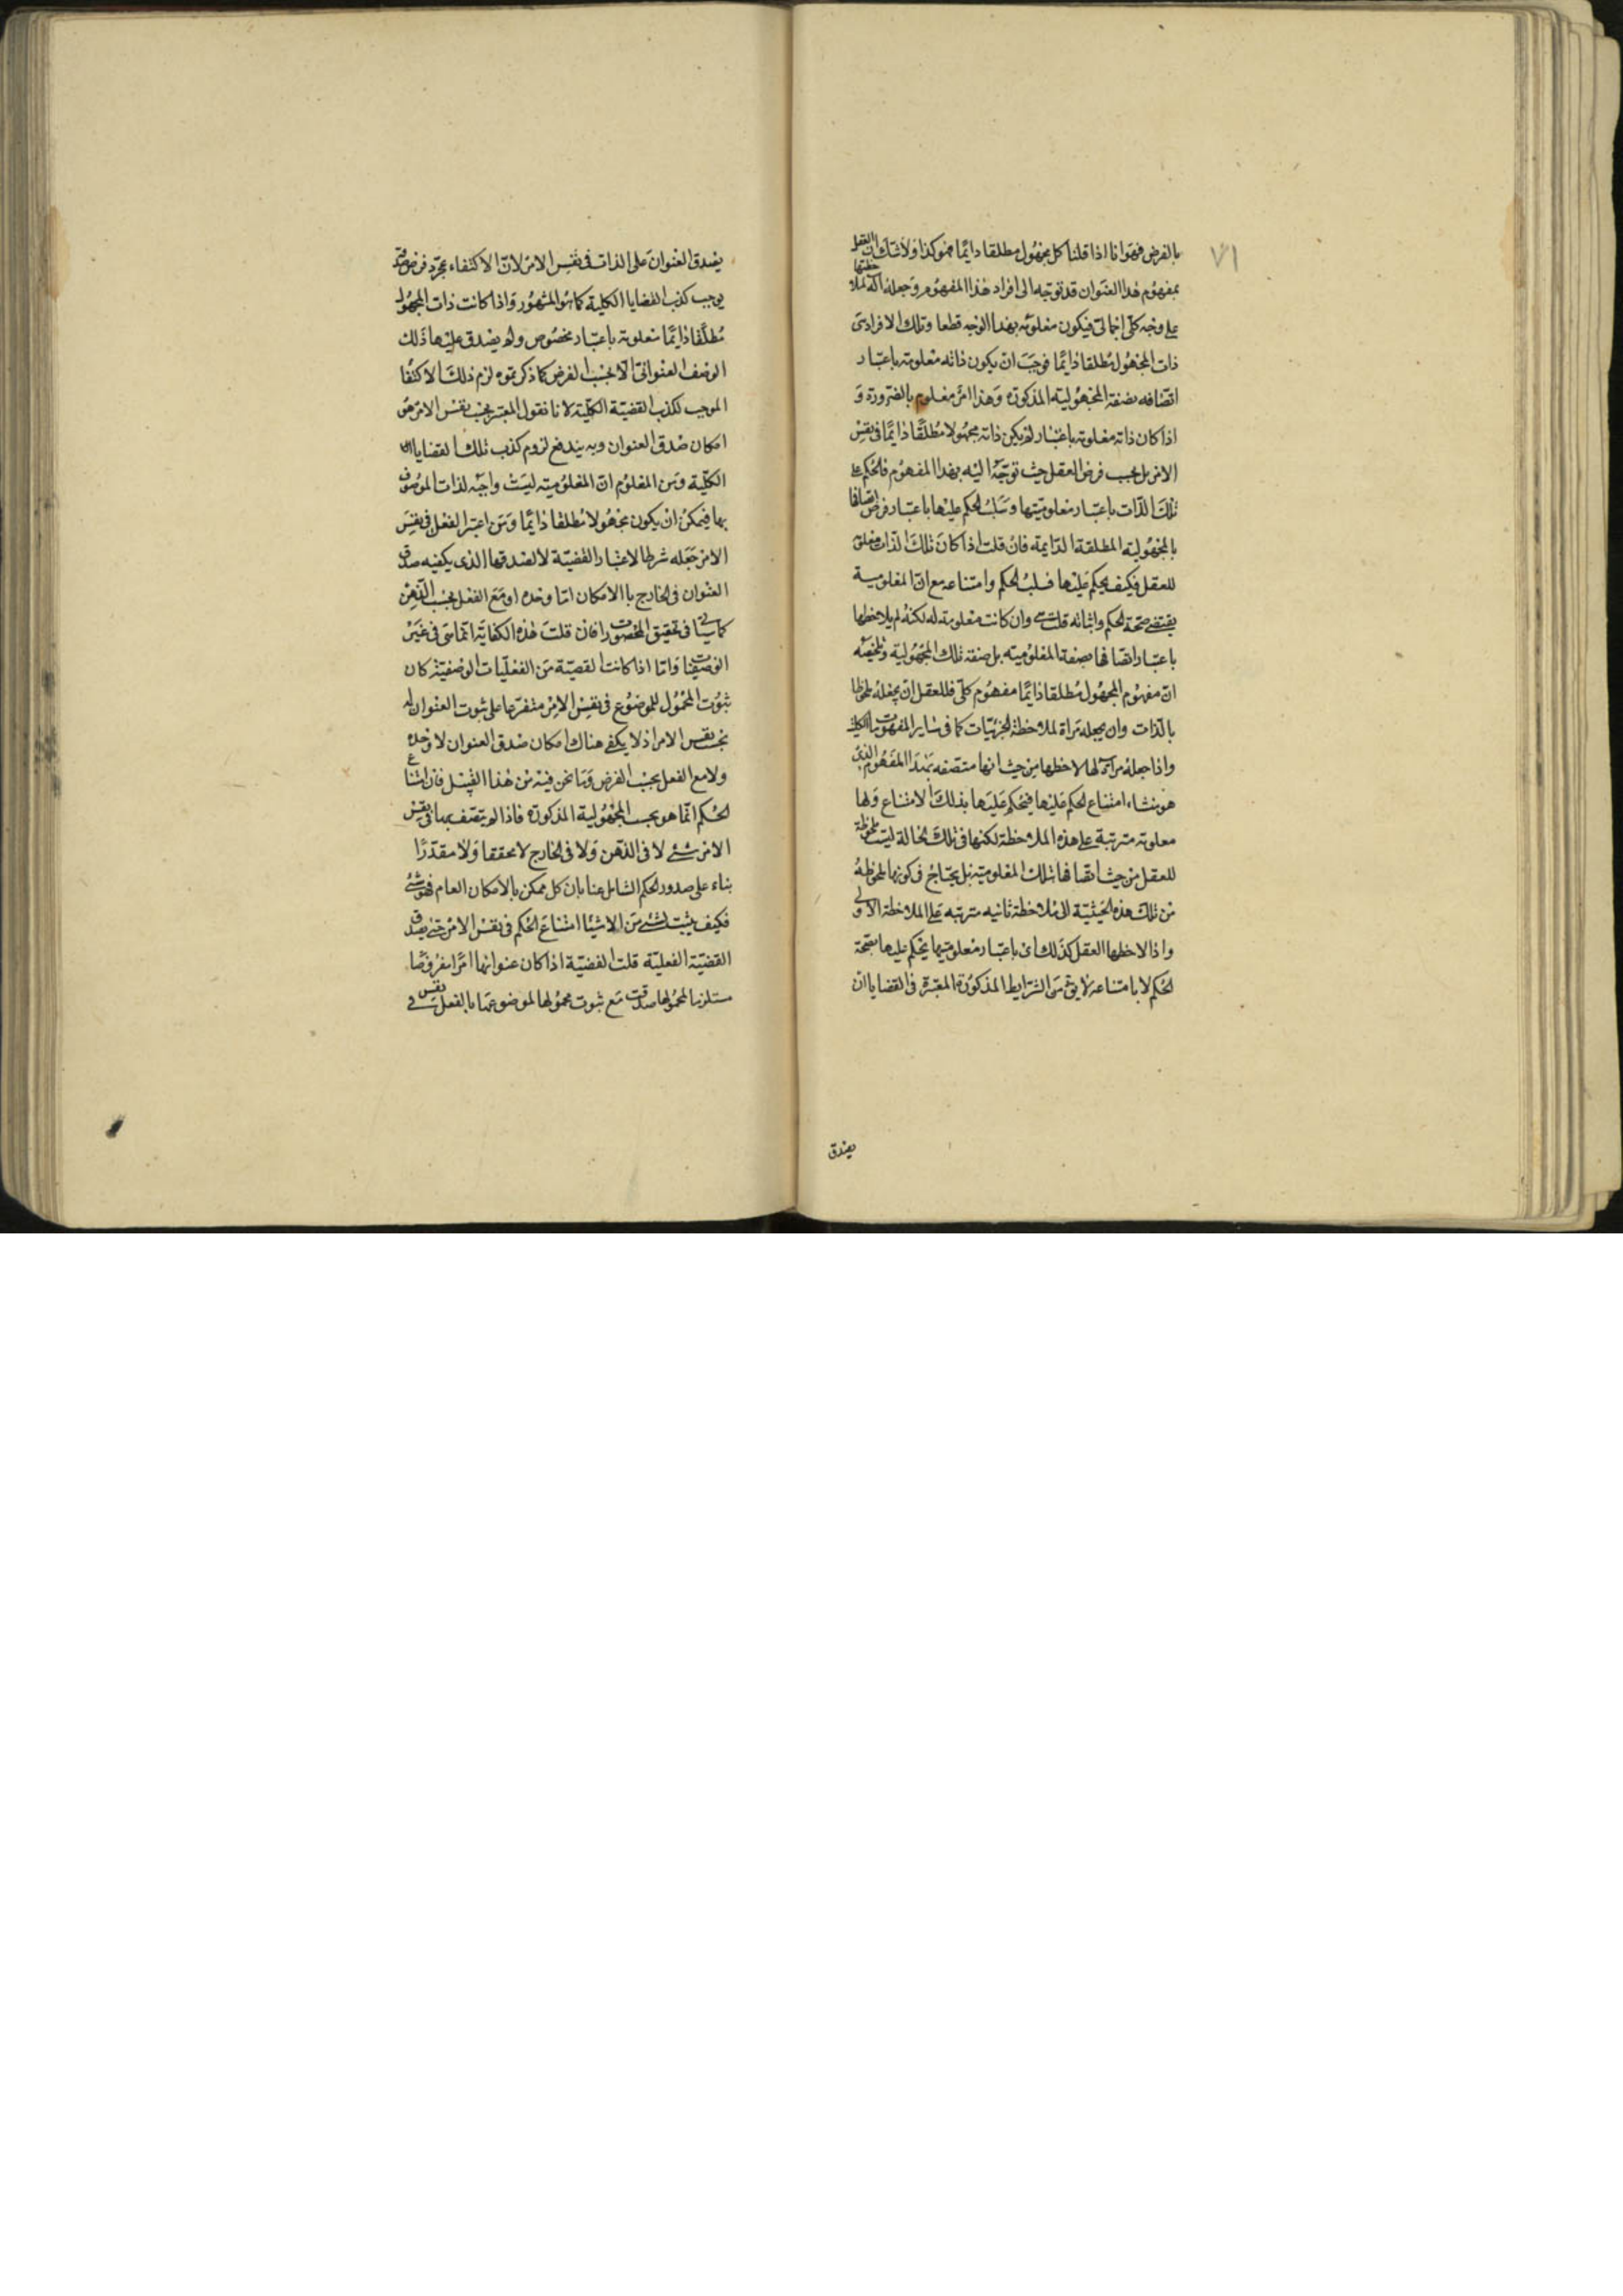 ٧١
بالفرض فهو انا اذا قلنا كل مجهول مطلقا دايما فهو كذا ولا شك ان العقل
بمفهوم هذا العنوان قد توجه الى افراد هذا المفهوم وجعله آلة لملاحظتها
على وجه كلى اجمالى فيكون معلومه بهذا الوجه قطعا وتلك الافراد هى
ذات المجهول مطلقا دايما فوجب ان يكون ذاته معلومة باعتبار
اتصافه بصفة المجهولية المذكورة وهذا امر معلوم بالضرورة و
اذا كان ذاته معلومة باعتبار لم يكن ذاته مجهولا مطلقا دايما فى نفس
الامر بل بحسب فرض العقل حيث توجه اليه بهذا المفهوم فالحكم على
تلك الذات باعتبار معلوميتها وسلب الحكم عليها باعتبار فرض اتصافها
بالمجهولية المطلقة الدايمة فان قلت اذا كان تلك الذات معلومة
للعقل فكيف يحكم عليها بسلب الحكم وامتناعه مع ان المعلومية
يقتضى صحة الحكم واثباته قلت هى وان كانت معلومة له لكنه لم يلاحظها
باعتبار اتصافها بصفة المعلومية بل صفة تلك المجهولية وتلخيصه
ان مفهوم المجهول مطلقا دايما مفهوم كلى فللعقل ان يجعله ملحوظا
بالذات وان يجعله مرآة لملاحظة الجزئيات كما فى ساير المفهومات الكلية
واذا جعله مرآة لها لاحظها من حيث انها متصفه بهذا المفهوم الذى
هو منشاء امتناع الحكم عليها فيحكم عليها بذلك الامتناع ولها
معلومة مترتبة على هذه الملاحظة لكنها فى تلك الحالة ليست ملحوظة
للعقل من حيث اتصافها بتلك المعلومية بل يحتاج فى كونها ملحوظة
من تلك هذه الحيثية الى ملاحظة ثانيه مترتبه على الملاحظة الاولى
واذا لاحظها العقل كذلك اى باعتبار معلوميتها يحكم عليها بصحة
الحكم لا بامتناعه لا يق من الشرايط المذكورة المعتبرة فى القضايا ان
يصدق
يصدق العنوان على الذات فى نفس الامر لان الاكتفاء بمجرد فرض صدقه
يوجب كذب القضايا الكلية كما هو المشهور واذا كانت ذات المجهول
مطلقا دايما معلومة باعتبار مخصوص ولم يصدق عليها ذلك
الوصف العنوانى الا بحسب الفرض كما ذكرتموه لزم ذلك الاكتفا
الموجب لكذب القضية الكلية لانا نقول المعتبر بحسب نفس الامر هو
امكان صدق العنوان وبه يندفع لزوم كذب تلك القضايا
الكلية ومن المعلوم ان المعلومية ليست واجبه لذات الموصوف
بها فيمكن ان يكون مجهولا مطلقا دايما ومن اعتبر الفعل فى نفس
الامر جعله شرطا لاعتبار القضية لا لصدقها الذى يكفيه صدق
العنوان فى الخارج بالامكان اما وحده او مع الفعل بحسب الذهن
كما سياتى فى تحقيق المحصورات فان قلت هذه الكفاية انما هى فى غير
الوصفيات واما اذا كانت القضية من الفعليات الوصفية كان
ثبوت المحمول للموضوع فى نفس الامر متفرعا على ثبوت العنوان له
بحسب نفس الامر اذ لا يكفى هناك امكان صدق العنوان لا وحده
ولا مع الفعل بحسب الفرض وما نحن فيه من هذا القبيل فان امتناع
الحكم انما هو بحسب المجهولية المذكورة فاذا لم يتصف بها فى نفس
الامر شئ لا فى الذهن ولا فى الخارج لا محققا ولا مقدرا
بناء على صدور الحكم الشامل عنا بان كل ممكن بالامكان العام فهو شئ
فكيف يثبت لشئ من الاشيا امتناع الحكم فى نفس الامر حتى يصدق
القضية الفعلية قلت القضية اذا كان عنوانها امرا مفروضا
مستلزما لمحمولها صدقت مع ثبوت محمولها لموضوعها بالفعل فى نفس